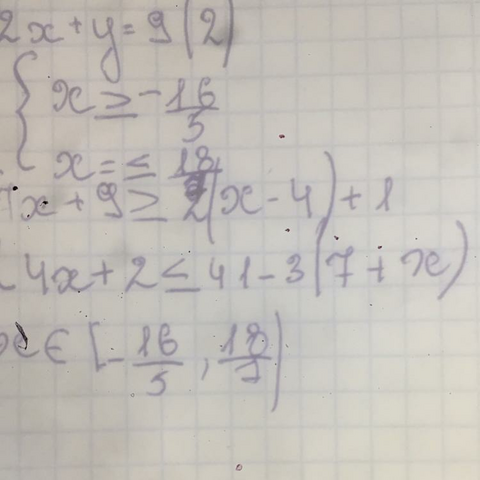 2x + y = 9 (2)
{ x ≥ - 16/5
x = ≤ 18/7
7x + 9 ≥ 2(x - 4) + 1
4x + 2 ≤ 41 - 3(7 + x)
x ∈ [- 16/5 , 18/7)